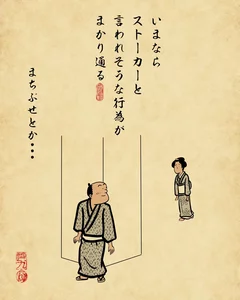 いまなら
ストーカーと
言われそうな行為が
まかり通る
まちぶせとか・・・